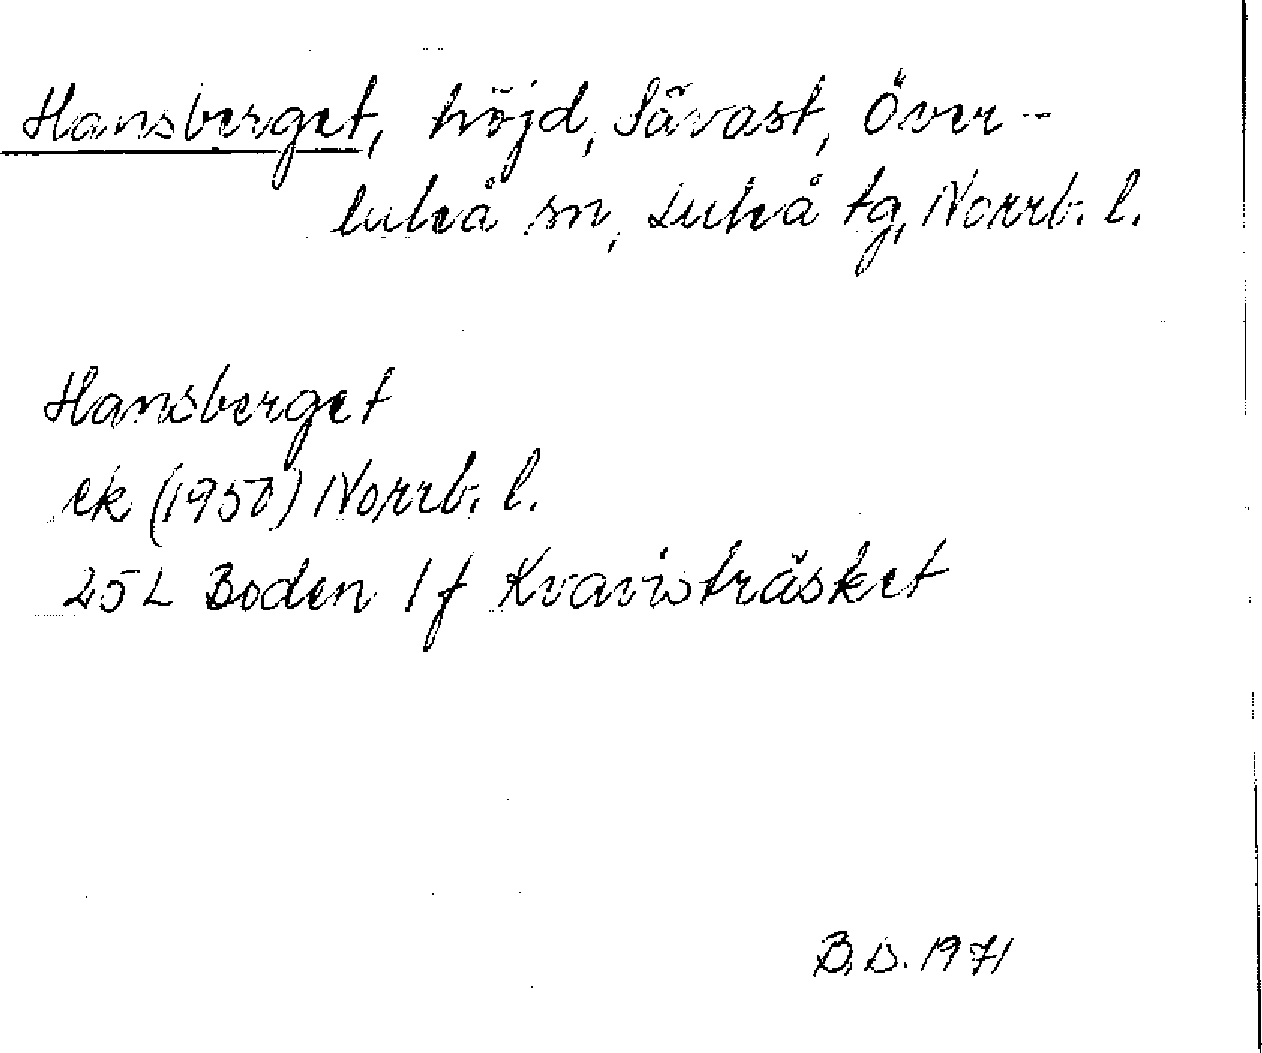 Hansberget, höjd, Sävast, Över-
luleå sn, Luleå tg, Norrb. l.
Hansberget
ek (1950) Norrb. l.
25L Boden 1f Kvavisträsket
B.D. 1971